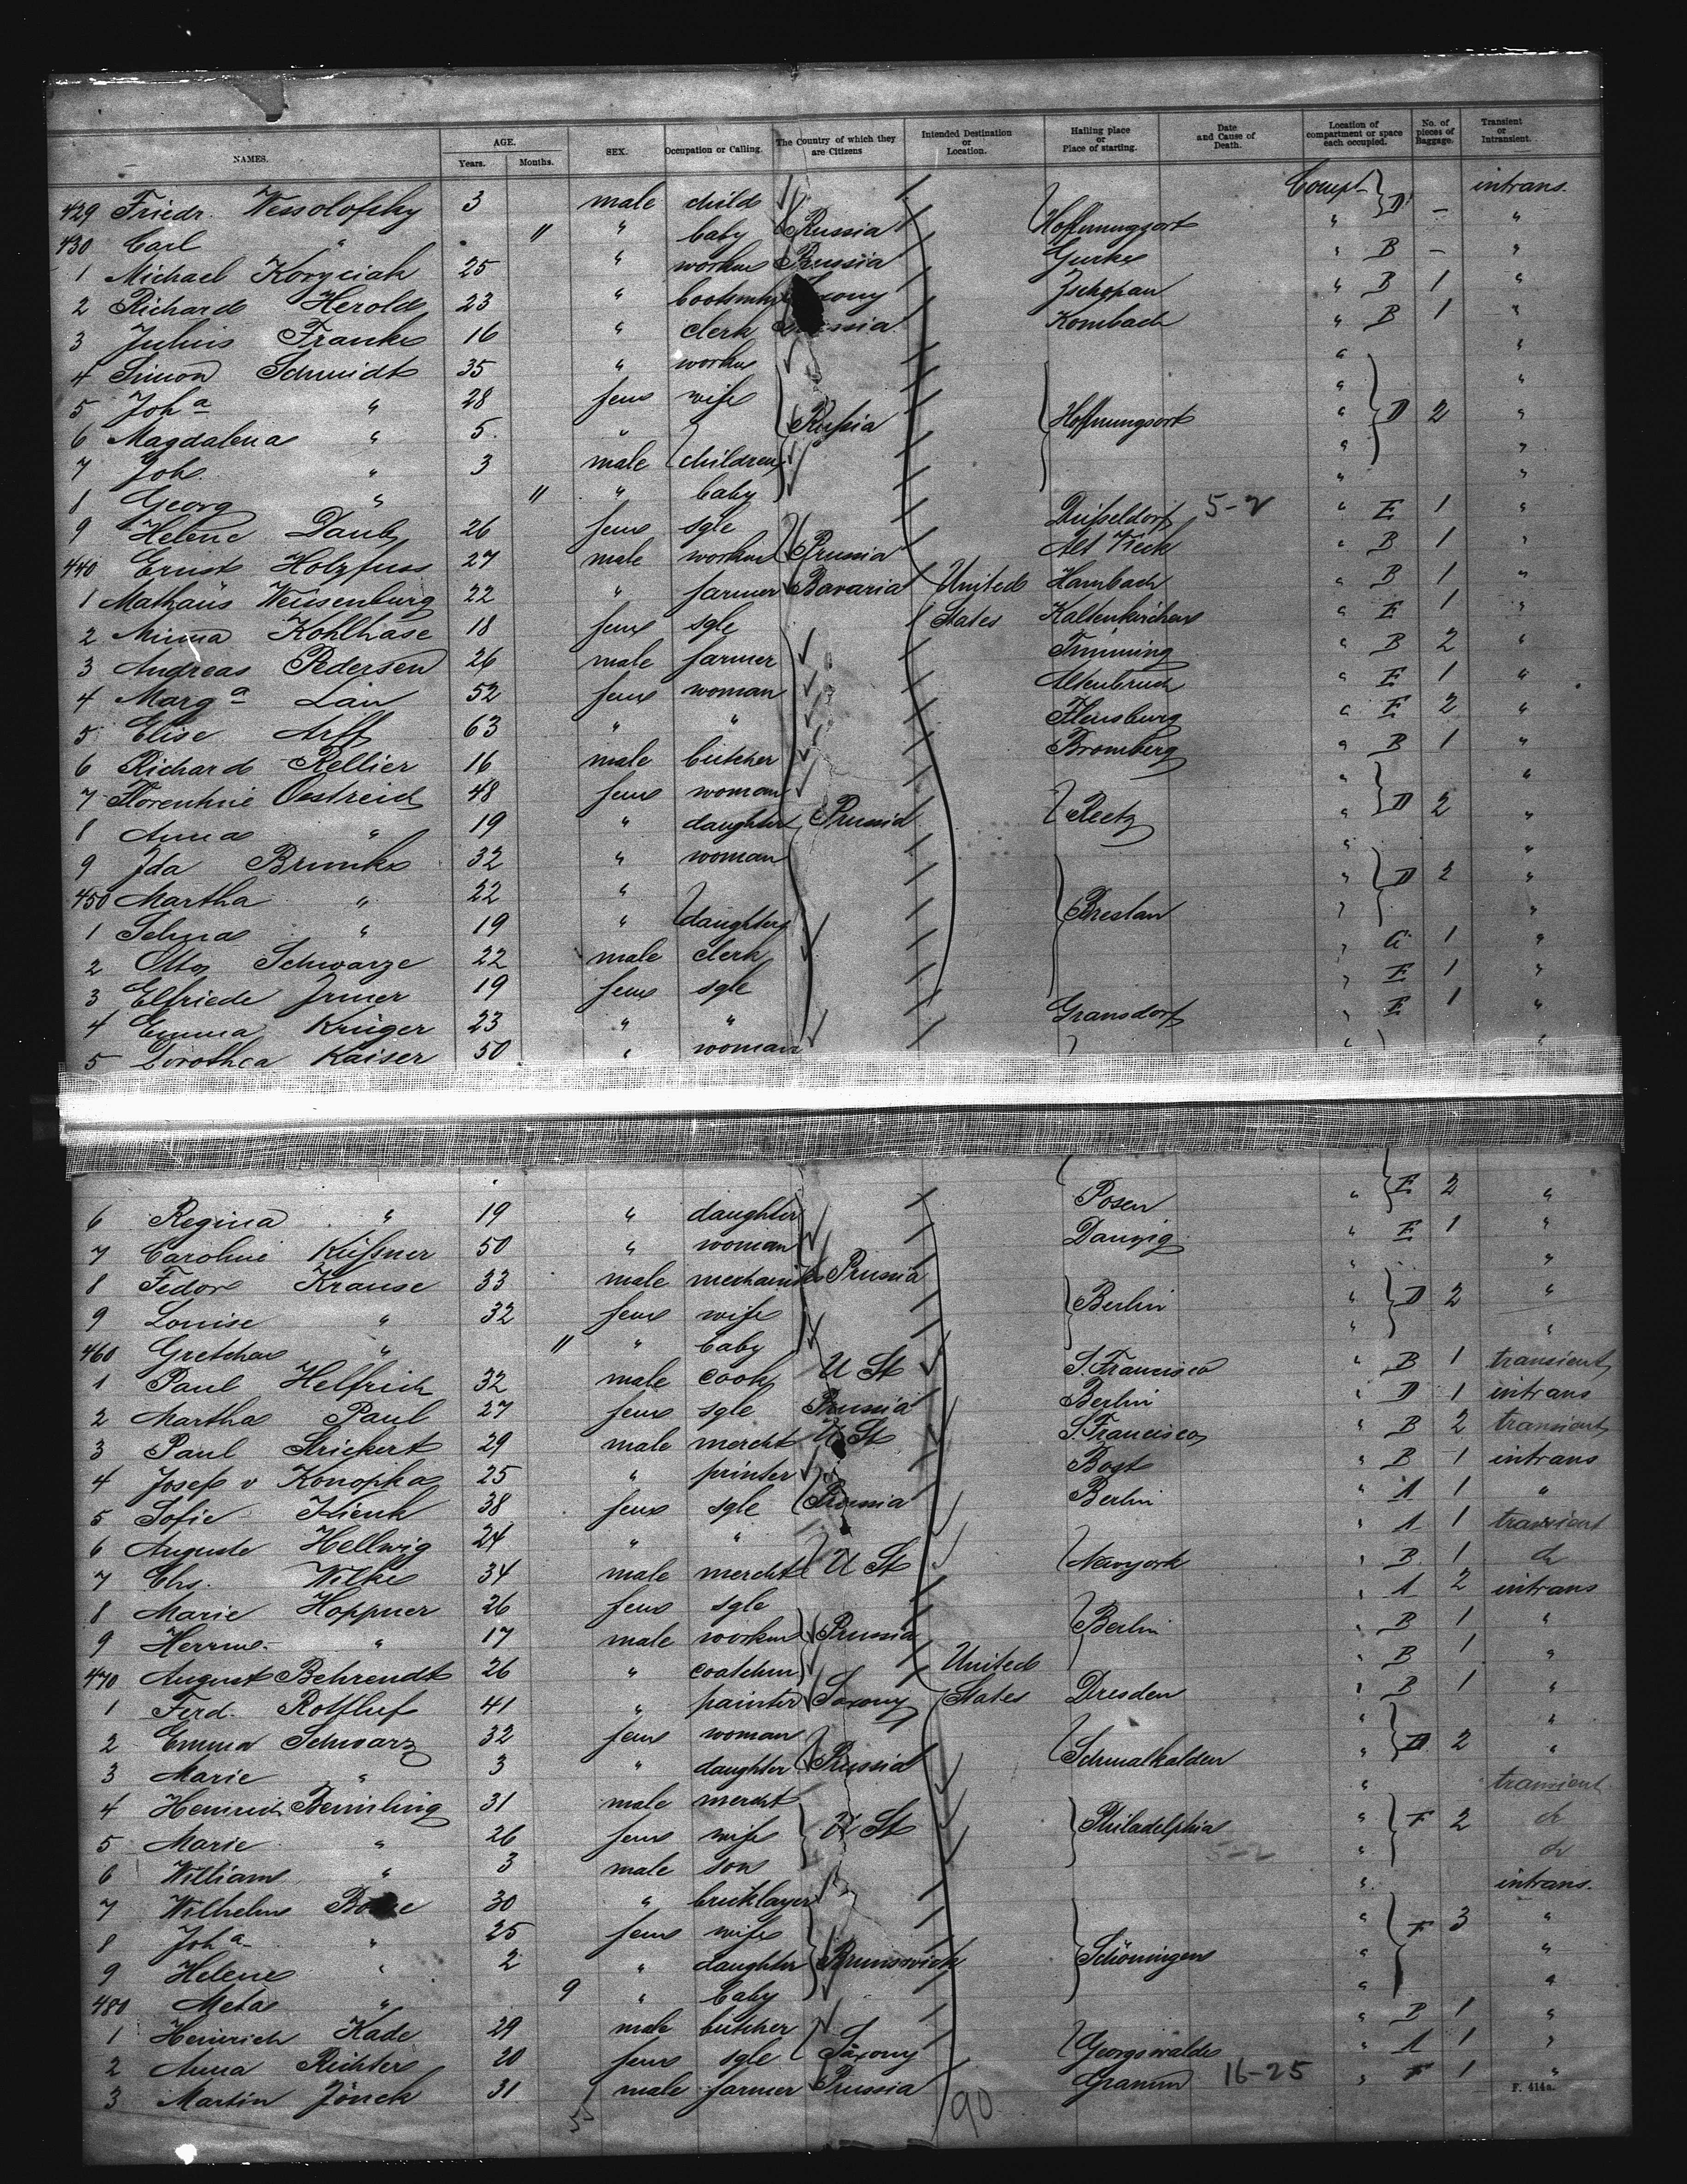 NAMES. AGE. Years. Months. SEX. Occupation or Calling. The Country of which they are Citizens Intended Destination or Location. Hailing place or Place of starting. Date and Cause of Death. Location of compartment or space each occupied. No. of pieces of Baggage. Transient or Intransient.
429 Friedr. Wessolofsky 3 male child Compt D intrans.
430 Carl " 11 " baby Russia Hoffnungsort " - "
1 Michael Koryciak 25 " workm Prussia Gurke " B - "
2 Richard Herold 23 " Zschopau " B 1 "
3 Julius Franke 16 " clerk Kombach " B 1 "
4 Simon Schmidt 35 " workm " "
5 Joha " 28 fem wife " "
6 Magdalena " 5 " Russia Hoffnungsort " D 2 "
7 Joh. " 3 male children " "
8 Georg " 11 " baby " "
9 Helene Daub 26 fem sgle Düsseldorf 5-2 " E 1 "
440 Ernst Holzfuss 27 male workm Prussia " B 1 "
1 Mathäus Weissenburg 22 " farmer Bavaria United Hambach " B 1 "
2 Minna Kohlhase 18 fem sgle States Kaltenkirchen " E 1 "
3 Andreas Pedersen 26 male farmer " B 2 "
4 Marga Lau 52 fem woman Altenbruch " E 1 "
5 Elise Arff 63 " " Flensburg " E 2 "
6 Richard Rellier 16 male butcher Bromberg " B 1 "
7 Florentine Oestreich 48 fem woman " "
8 Anna " 19 " daughter Prussia Reetz " D 2 "
9 Ida Brunke 32 " woman " "
450 Martha " 22 " " D 2 "
1 Selma " 19 " daughters Breslau " "
2 Otto Schwarze 22 male clerk " 1 "
3 Elfriede Irmer 19 fem sgle " E 1 "
4 Emma Krüger 23 " " Gransdorf " E 1 "
5 Dorothea Kaiser 50 " woman " "
6 Regina " 19 " daughter Posen " E 2 "
7 Caroline Küssner 50 " woman Danzig " E 1 "
8 Fedor Krause 33 male mechanikr Prussia " "
9 Louise " 32 fem wife Berlin " D 2 "
460 Gretchen " 11 " baby " "
1 Paul Helfrich 32 male cook U St S. Francisco " B 1 transient
2 Martha Paul 27 fem sgle Prussia Berlin " D 1 intrans
3 Paul Strickert 29 male mercht U St S. Francisco " B 2 transient
4 Josef v Konopka 25 " printer " B 1 intrans
5 Sofie Kienk 38 fem sgle Prussia Berlin " A 1 "
6 Auguste Hellwig 24 " " " A 1 transient
7 Chs. Wilke 34 male mercht U St Newyork " B 1 do
8 Marie Hoppner 26 fem sgle " A 2 intrans
9 Herrm. " 17 male workm Prussia Berlin " B 1 "
470 August Behrendt 26 " coatchm United " B 1 "
1 Ferd. Rottluf 41 " painter Saxony States Dresden " B 1 "
2 Emma Schwarz 32 fem woman " "
3 Marie " 3 " daughter Prussia Schmalkalden " D 2 "
4 Heinrich Bemiling 31 male mercht " transient
5 Marie " 26 fem wife U St Philadelphia " F 2 do
6 William " 3 male son 5-2 " do
7 Wilhelm 30 " bricklayer " intrans.
8 Joha " 25 fem wife " F 3 "
9 Helene " 2 " daughter Brunswick Schöningen " "
480 Meta " 9 " baby " "
1 Heinrich Kade 29 male butcher " B 1 "
2 Anna Richter 20 fem sgle Saxony Georgswalde " A 1 "
3 Martin Jönck 31 male farmer Prussia Gramm 16-25 " F 1 "
F. 414a.
5 90